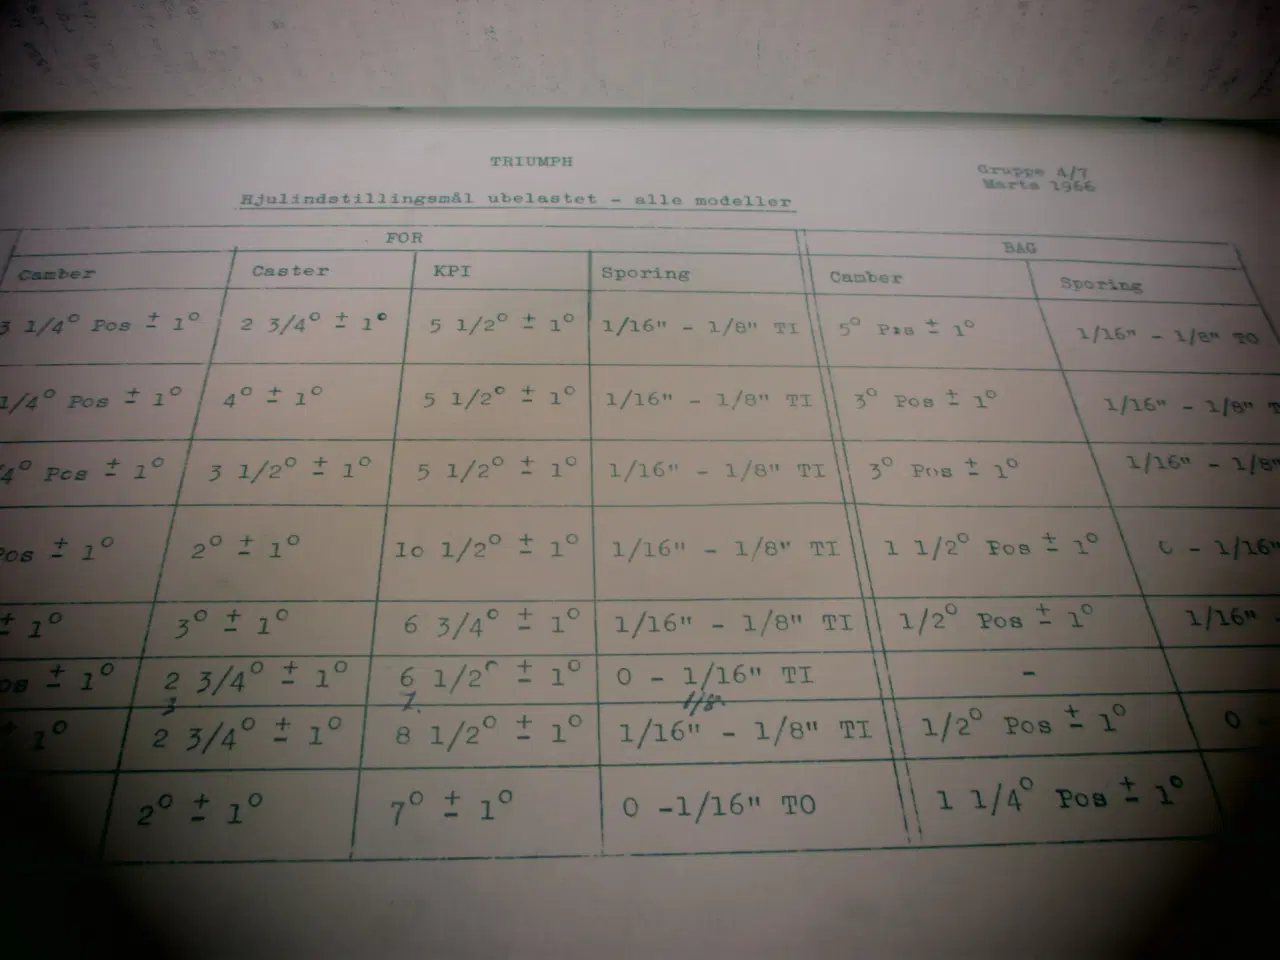 TRIUMPH
Gruppe 4/7
Marts 1966
Hjulindstillingsmål ubelastet - alle modeller
FOR BAG
Camber Caster KPI Sporing Camber Sporing
3 1/4° Pos ± 1° 2 3/4° ± 1° 5 1/2° ± 1° 1/16" - 1/8" TI 5° Pos ± 1° 1/16" - 1/8" TO
1/4° Pos ± 1° 4° ± 1° 5 1/2° ± 1° 1/16" - 1/8" TI 3° Pos ± 1° 1/16" - 1/8" T
4° Pos ± 1° 3 1/2° ± 1° 5 1/2° ± 1° 1/16" - 1/8" TI 3° Pos ± 1° 1/16" - 1/8"
Pos ± 1° 2° ± 1° 10 1/2° ± 1° 1/16" - 1/8" TI 1 1/2° Pos ± 1° 0 - 1/16"
± 1° 3° ± 1° 6 3/4° ± 1° 1/16" - 1/8" TI 1/2° Pos ± 1° 1/16" -
os ± 1° 2 3/4° ± 1° 6 1/2° ± 1° 0 - 1/16" TI -
3 7. 1/8"
± 1° 2 3/4° ± 1° 8 1/2° ± 1° 1/16" - 1/8" TI 1/2° Pos ± 1° 0 -
2° ± 1° 7° ± 1° 0 -1/16" TO 1 1/4° Pos ± 1°